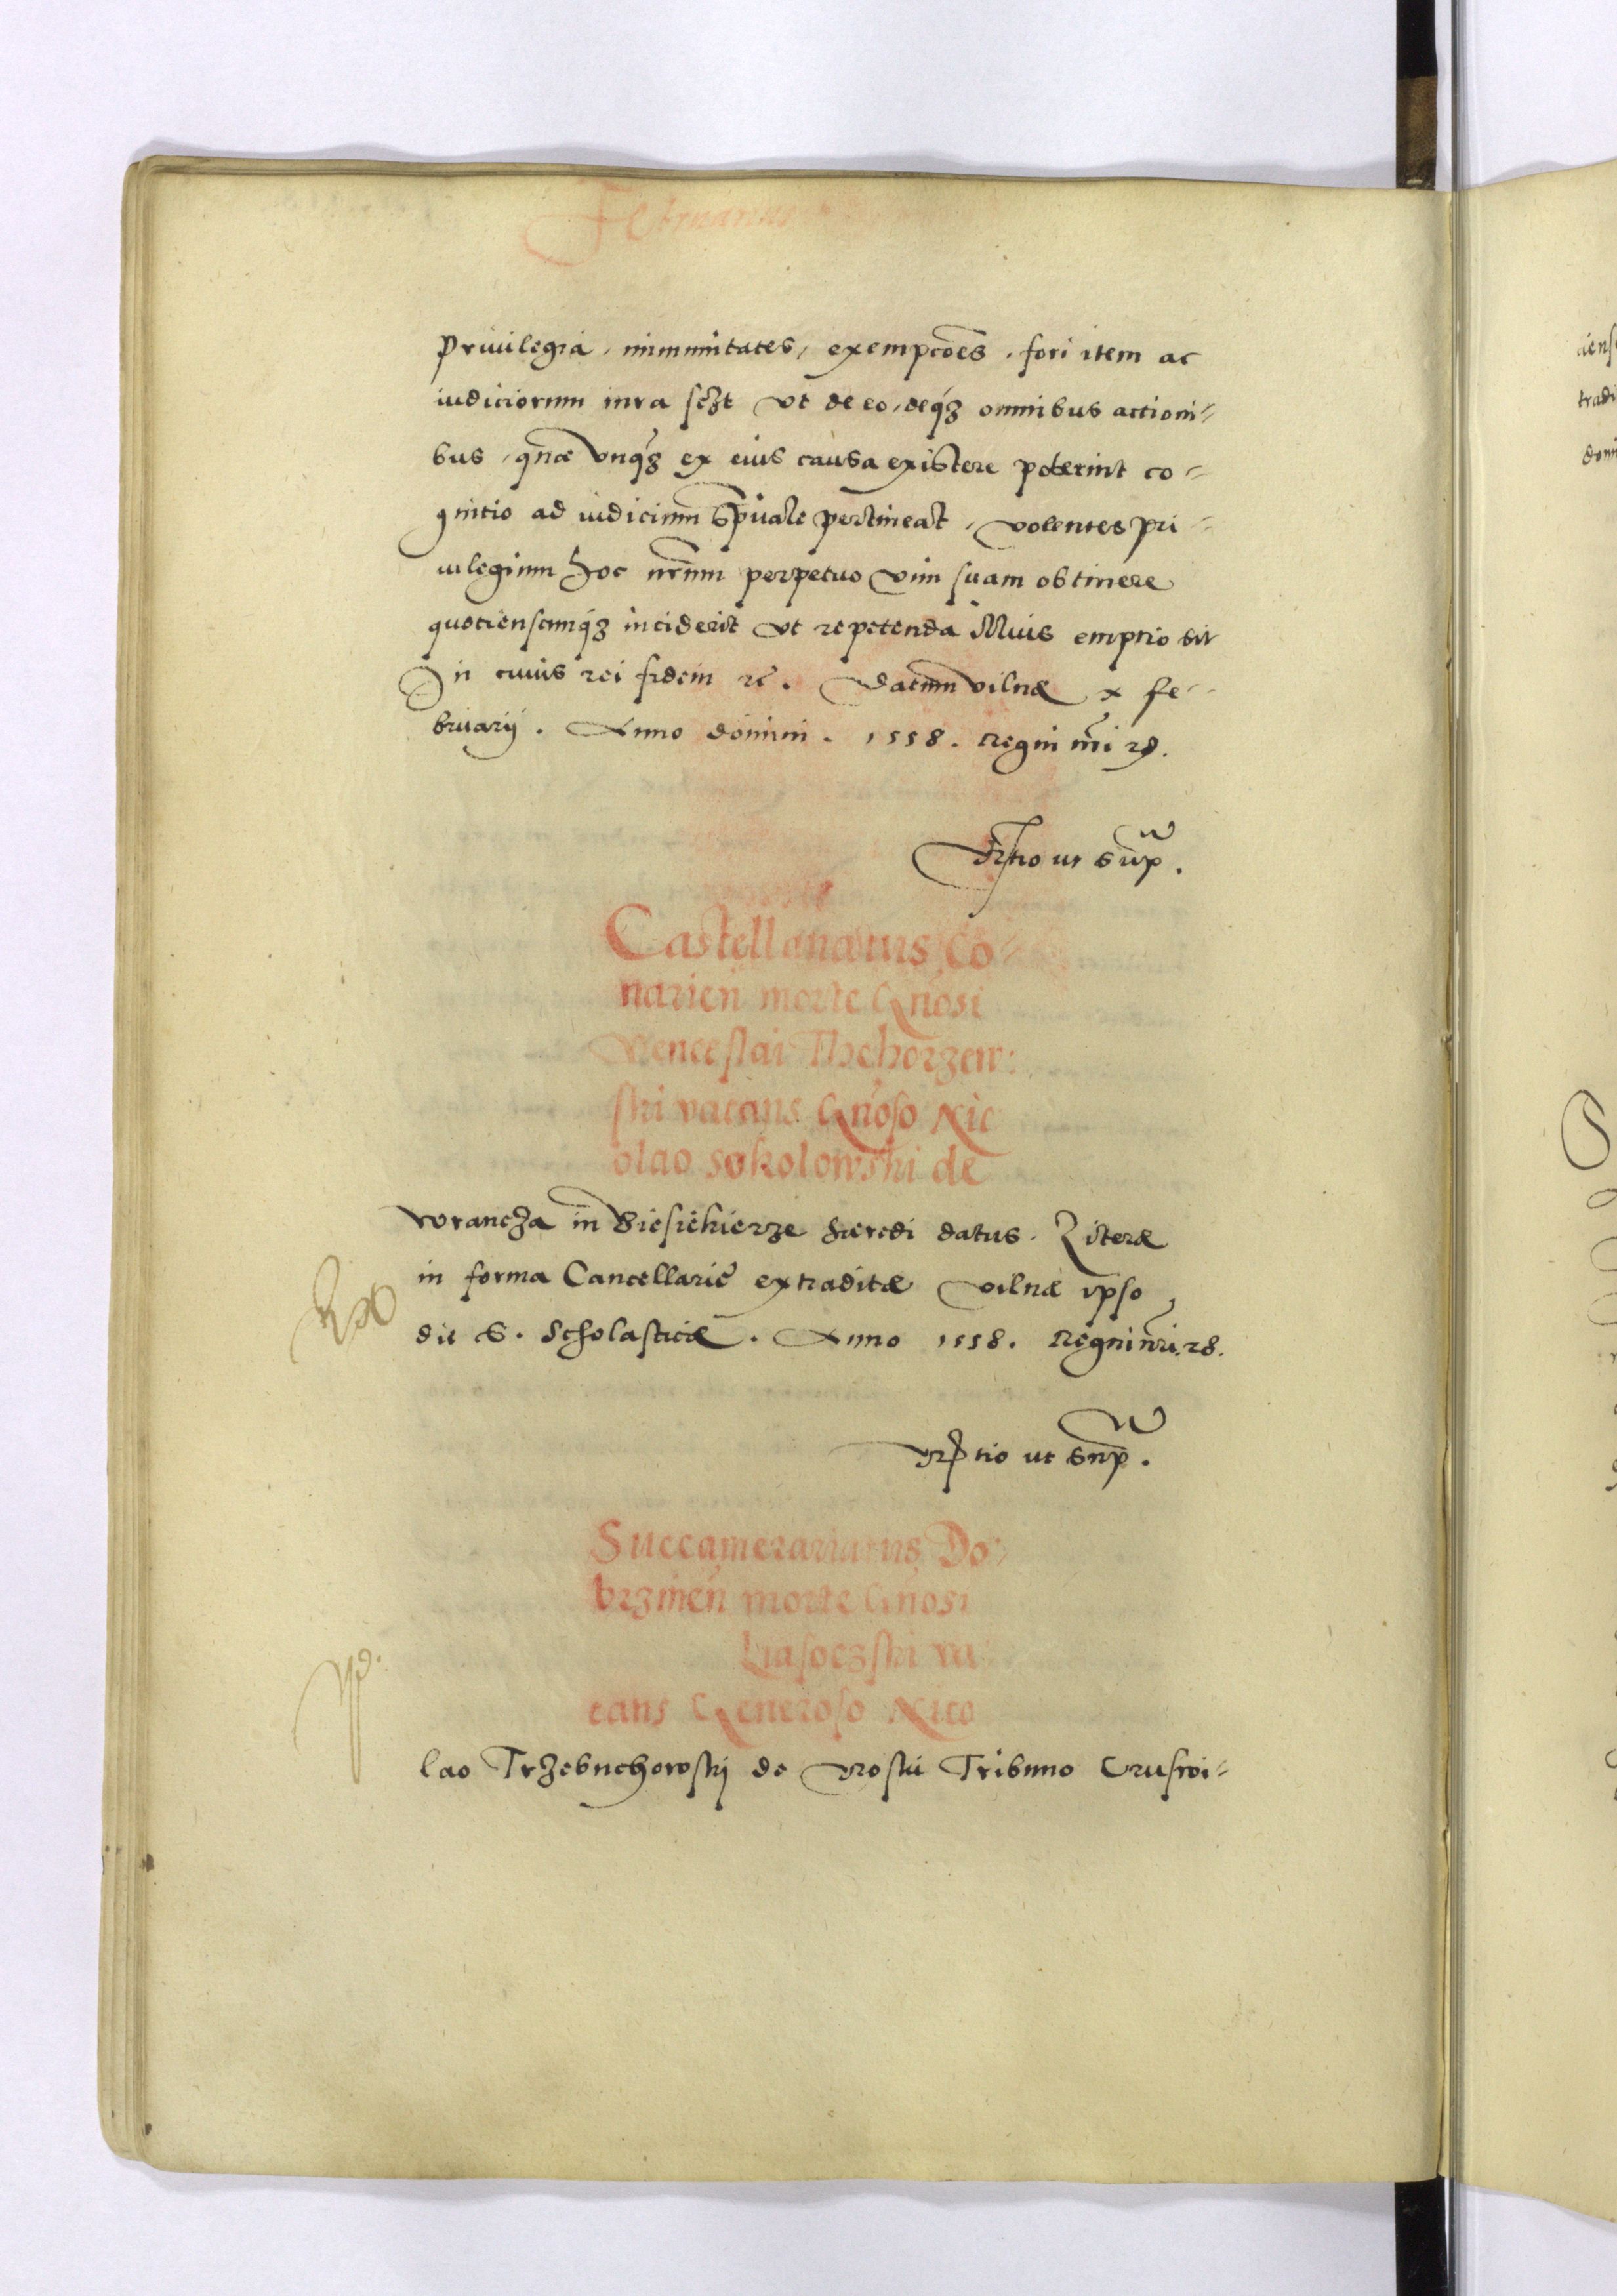 Februarius
Priuilegia, immunitates, exempcões, fori item ac
iudiciorum iura sczt vt de eo, deq́z omnibus actioni=
bus, quæ vnq́z ex eius causa existere poterint co=
gnitio ad iudicium Spũale pertineat, volentes pri=
uilegium hoc nr̃um perpetuo vim suam obtinere
quotienscunq́z inciderit vt repetenda illius emptio sit
In cuius rei fidem rc̃. Datum vilnæ x fe=
bruarij. Anno domini. 1558. Regni nr̃i 28.
ut sup.
Castellanatus Co=
narień morte Gńosi
Venceslai Thchorzew:
ski vacans Gńoso Nic
olao sokolowski de
wrancza in Biesiekierze hæredi datus. Literæ
in forma Cancellariẽ extraditæ vilnæ ipso
die S. Scholasticæ. Anno 1558. Regni nr̃i. 28.
ut sup.
Succamerariatus Do=
brzinień morte Gńosi
Liasoczski va
cans Generoso Nico
lao Trzebuchowskj de Tribuno Crusvi=